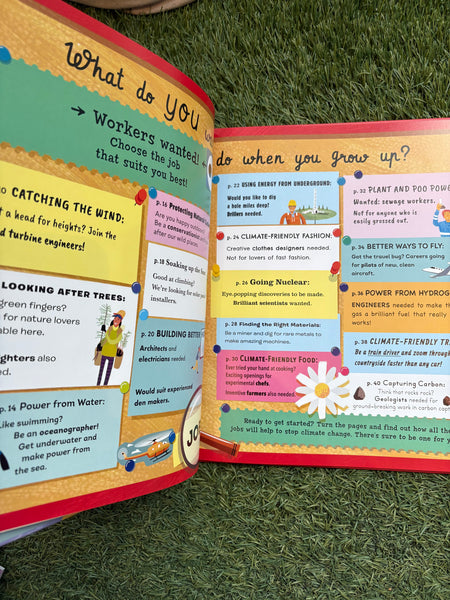 What do YOU
do when you grow up?
→ Workers wanted! ←
Choose the job
that suits you best!
CATCHING THE WIND:
a head for heights? Join the
wind turbine engineers!
p. 16 Protecting
Are you happy outdoors?
A conservationist
after our wild places.
LOOKING AFTER TREES:
green fingers?
for nature lovers
able here.
also
p. 18 Soaking up the
Good at climbing?
We're looking for
installers.
p. 20 BUILDING BETTER
Architects and
electricians needed.
Would suit experienced
den makers.
p. 14 Power from Water:
Like swimming?
Be an oceanographer!
Get underwater and
make power from
the sea.
p. 22 USING ENERGY FROM UNDERGROUND:
Would you like to dig
a hole miles deep?
Drillers needed.
p. 24 CLIMATE-FRIENDLY FASHION:
Creative clothes designers needed.
Not for lovers of fast fashion.
p. 26 Going Nuclear:
Eye-popping discoveries to be made.
Brilliant scientists wanted.
p. 28 Finding the Right Materials:
Be a miner and dig for rare metals to
make amazing machines.
p. 30 CLIMATE-FRIENDLY FOOD:
Ever tried your hand at cooking?
Exciting openings for
experimental chefs.
Inventive farmers also needed.
p. 32 PLANT AND POO POWER
Wanted: sewage workers.
Not for anyone who is
easily grossed out.
p. 34 BETTER WAYS TO FLY:
Got the travel bug? Careers going
for pilots of new, clean
aircraft.
p. 36 POWER FROM HYDROGEN
ENGINEERS needed to make th
gas a brilliant fuel that really
works!
p. 38 CLIMATE-FRIENDLY TR
Be a train driver and zoom through
countryside faster than any car!
p. 40 Capturing Carbon:
Think that rocks rock?
Geologists needed for
ground-breaking work in carbon captu
Ready to get started? Turn the pages and find out how all the
jobs will help to stop climate change. There's sure to be one for y
JO